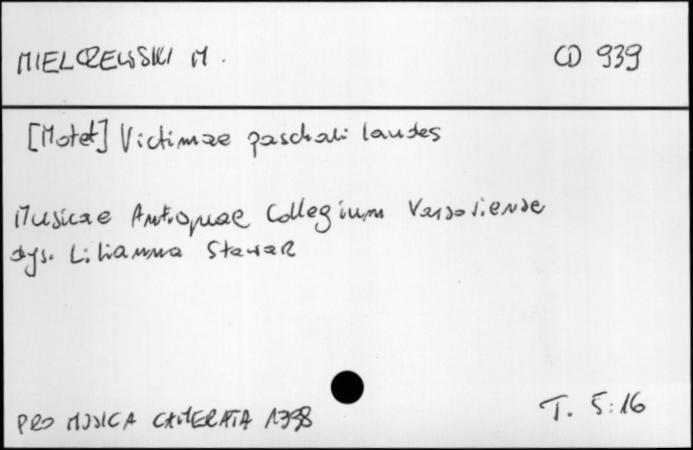 MIELCZEWSKI M. CD 939
[Motet] Victimae paschali laudes
Musicae Antiquae Collegium Varsoviense
dyr. Lilianna Stawarz
PRO MUSICA CAMERATA 1998 T. 5:16